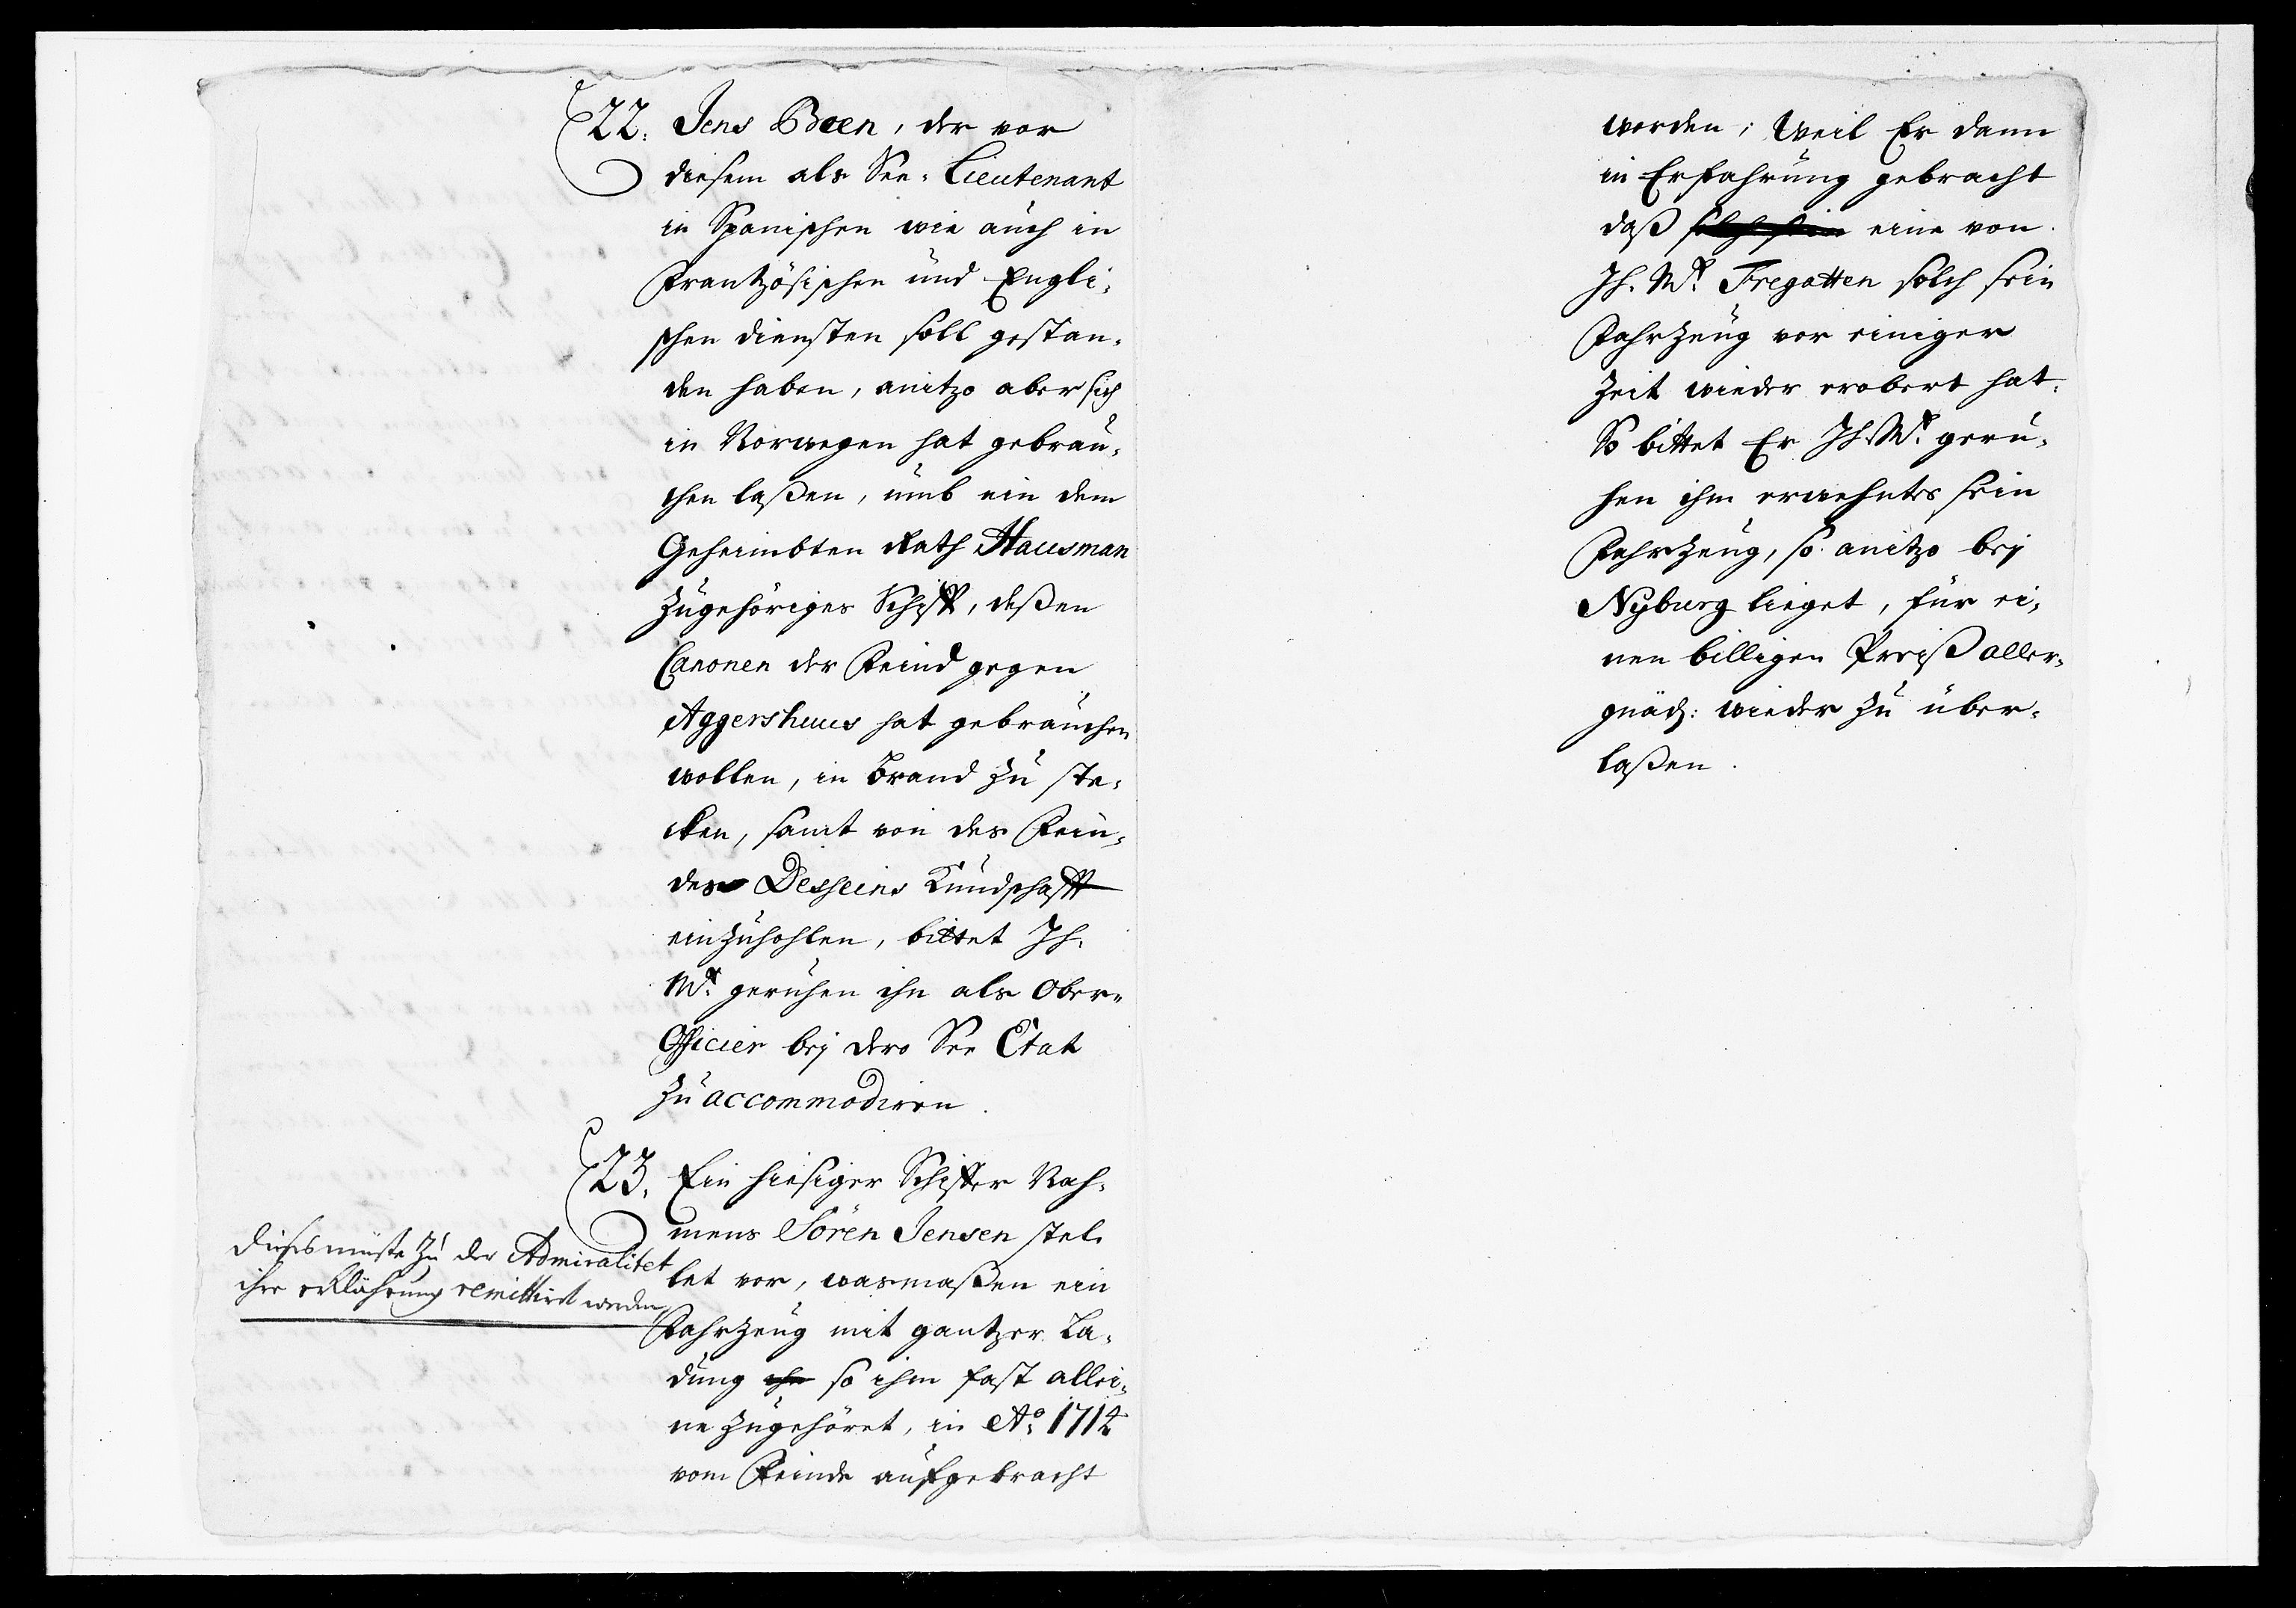 22. Jens Boen, der vor
diesem als See-Lieutenant
in Spanischen wie auch in
Frantzösischen und Engli-
schen diensten soll gestan-
den haben, anitzo aber sich
in Norwegen hat gebrau-
chen laßen, umb ein dem
Geheimbten Rath Hausman
zugehöriges Schiff, deßen
Canonen der Feind gegen
Aggershuus hat gebrauchen
wollen, in Brand zu ste-
cken, samt von des Fein-
des Desseins Kundschafft
einzuhohlen, bittet Ih.
Mt. geruhen ihn als Ober-
Officier bey dero See Etat
zu accommodiren.
23. Ein hiesiger Schiffer Nah-
mens Sören Jensen stel-
let vor, wasmaßen ein
Fahrzeug mit gantzer La-
dung ihn so ihm fast allei-
ne zugehöret, in Ao. 1712
vom Feinde aufgebracht
dieses müste zu der Admiralitet
ihre erklährung remittirt werden
worden; Weil Er dann
in Erfahrung gebracht
daß solch sein eine von
Ih. Mt. Fregatten solch sein
Fahrzeug vor einiger
Zeit wieder erobert hat.
So bittet Er Ih. Mt. geru-
hen ihm erwehntes sein
Fahrzeug, so anitzo bey
Nyburg lieget, für ei-
nen billigen Preiß aller-
gnäd: wieder zu über-
laßen.